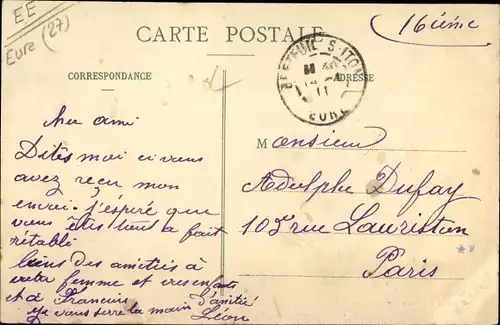 EE
Eure (27)
16ième
CARTE POSTALE
BRETEUIL-S-ITON
11
EURE
CORRESPONDANCE
ADRESSE
Cher ami
Dites moi ci vous
avez reçu mon
envoi. j'éspére que
vous êtes tout a fait
rétabli
biens des amitiés à
votre femme et vos enfants
et a Francin
je vous serre la main d'amitié
Léon
Monsieur
Adolphe Dufay
103 rue Lauriston
Paris